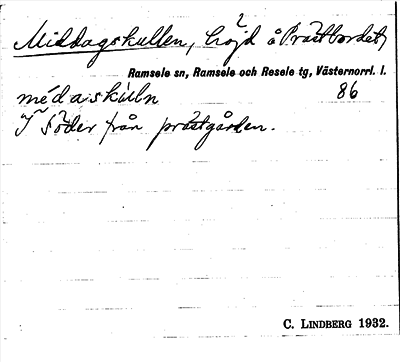 Middagskullen, höjd å Prästbordet,
Ramsele sn, Ramsele och Resele tg, Västernorrl. l.
médaskùln 86
I söder från prästgården.
C. LINDBERG 1932.